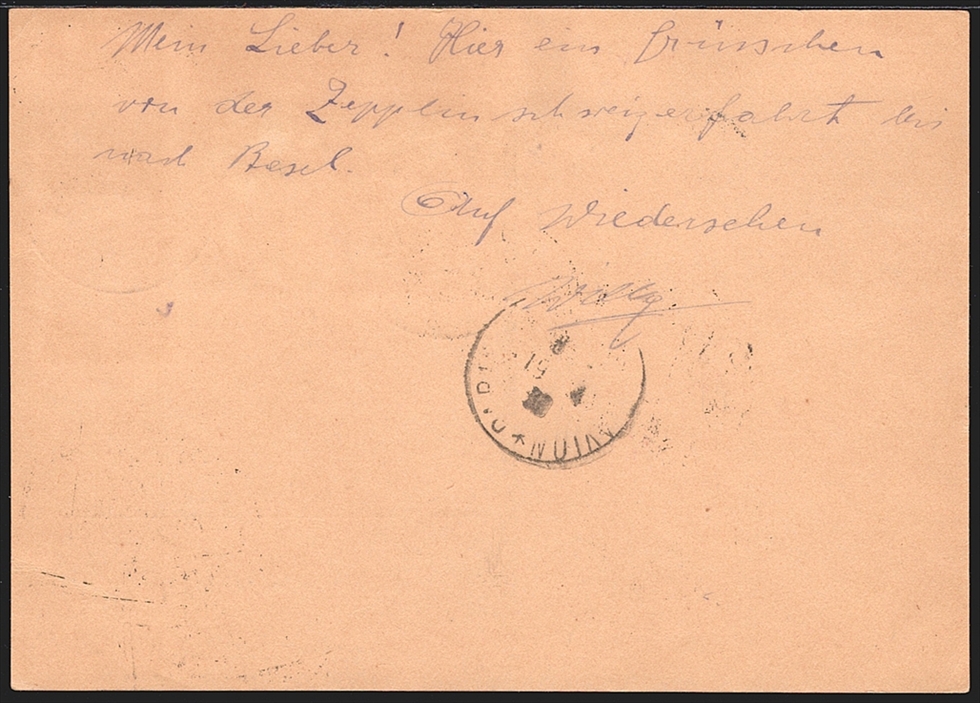 Mein Lieber! Hier ein Grüsschen
von der Zeppelin schweizerfahrt bis
nach Basel.
Auf Wiedersehen
Willy
51
AVION *